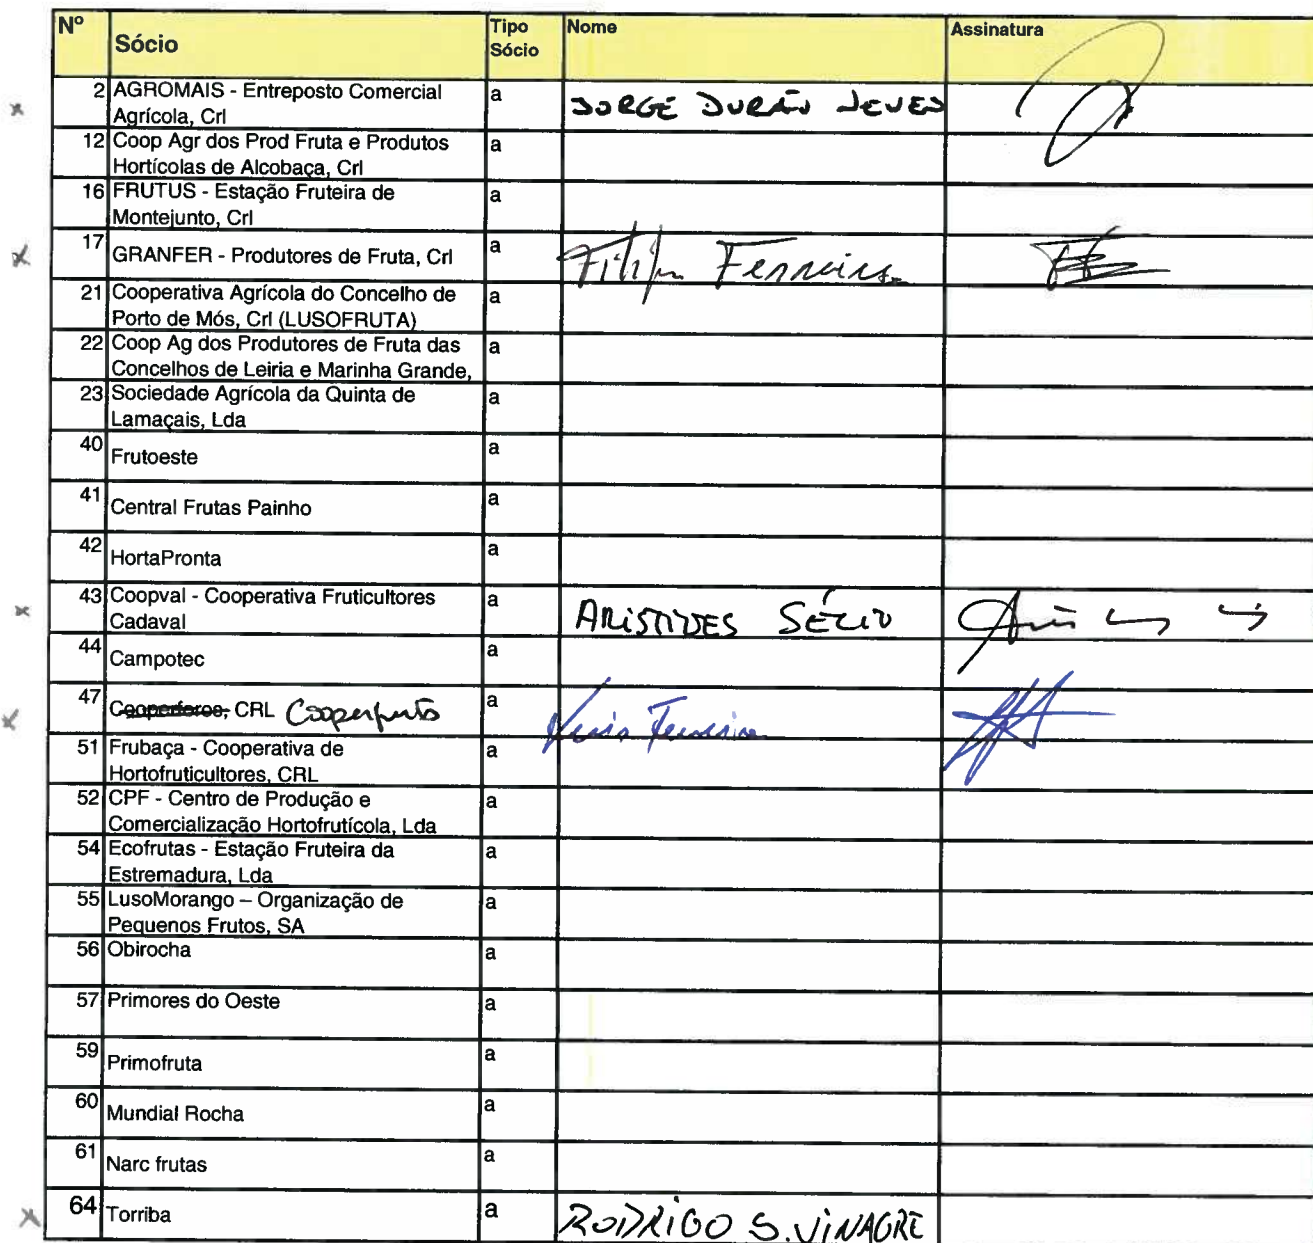 Nº Sócio Tipo Sócio Nome Assinatura
2 AGROMAIS - Entreposto Comercial a JORGE DURÃO NEVES
Agrícola, Crl
12 Coop Agr dos Prod Fruta e Produtos a
Hortícolas de Alcobaça, Crl
16 FRUTUS - Estação Fruteira de a
Montejunto, Crl
17 GRANFER - Produtores de Fruta, Crl a Filipe Ferreira
21 Cooperativa Agrícola do Concelho de a
Porto de Mós, Crl (LUSOFRUTA)
22 Coop Ag dos Produtores de Fruta das a
Concelhos de Leiria e Marinha Grande,
23 Sociedade Agrícola da Quinta de a
Lamaçais, Lda
40 Frutoeste a
41 Central Frutas Painho a
42 HortaPronta a
43 Coopval - Cooperativa Fruticultores a ARISTIDES SÉCIO
Cadaval
44 Campotec a
47 CRL Cooperfruto a Ferreira
51 Frubaça - Cooperativa de a
Hortofruticultores, CRL
52 CPF - Centro de Produção e a
Comercialização Hortofrutícola, Lda
54 Ecofrutas - Estação Fruteira da a
Estremadura, Lda
55 LusoMorango – Organização de a
Pequenos Frutos, SA
56 Obirocha a
57 Primores do Oeste a
59 Primofruta a
60 Mundial Rocha a
61 Narc frutas a
64 Torriba a RODRIGO S. VINAGRE